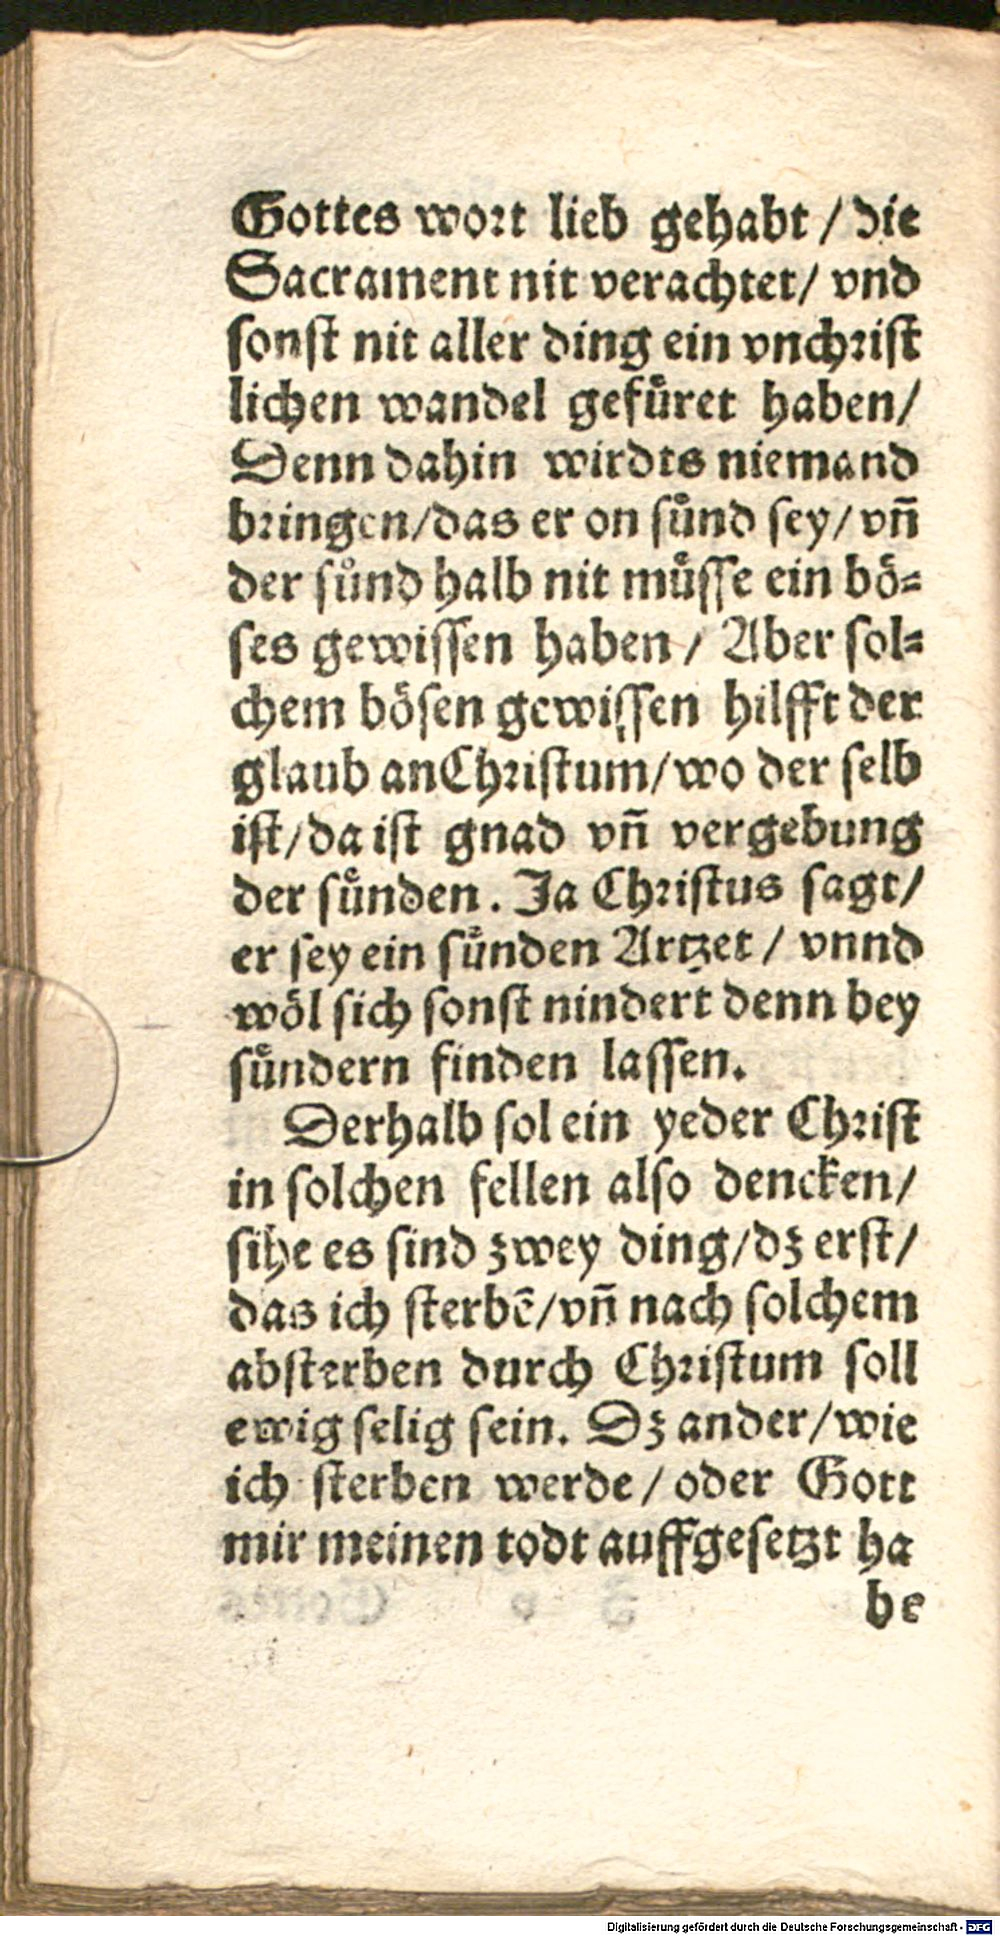 Gottes wort lieb gehabt / die
Sacrament nit verachtet/ vnd
ſonſt nit aller ding ein vnchriſt
lichen wandel gefuͤret haben/
Denn dahin wirdts niemand
bringen/das er on ſuͤnd ſey/ vñ
der ſuͤnd halb nit muͤſſe ein boͤ⸗
ſes gewiſſen haben / Aber ſol⸗
chem boͤſen gewiſſen hilfft der
glaub an Chriſtum/wo der ſelb
iſt/da iſt gnad vñ vergebung
der ſuͤnden. Ja Chriſtus ſagt/
er ſey ein ſuͤnden Artzet / vnnd
woͤl ſich ſonſt nindert denn bey
ſuͤndern finden laſſen.
Derhalb ſol ein yeder Chriſt
in ſolchen fellen alſo dencken/
ſihe es ſind zwey ding/dz erſt/
das ich ſterbẽ/vñ nach ſolchem
abſterben durch Chriſtum ſoll
ewig ſelig ſein. Dz ander/wie
ich ſterben werde / oder Gott
mir meinen todt auffgeſetzt ha
be
Digitalisierung gefördert durch die Deutsche Forschungsgemeinschaft - DFG